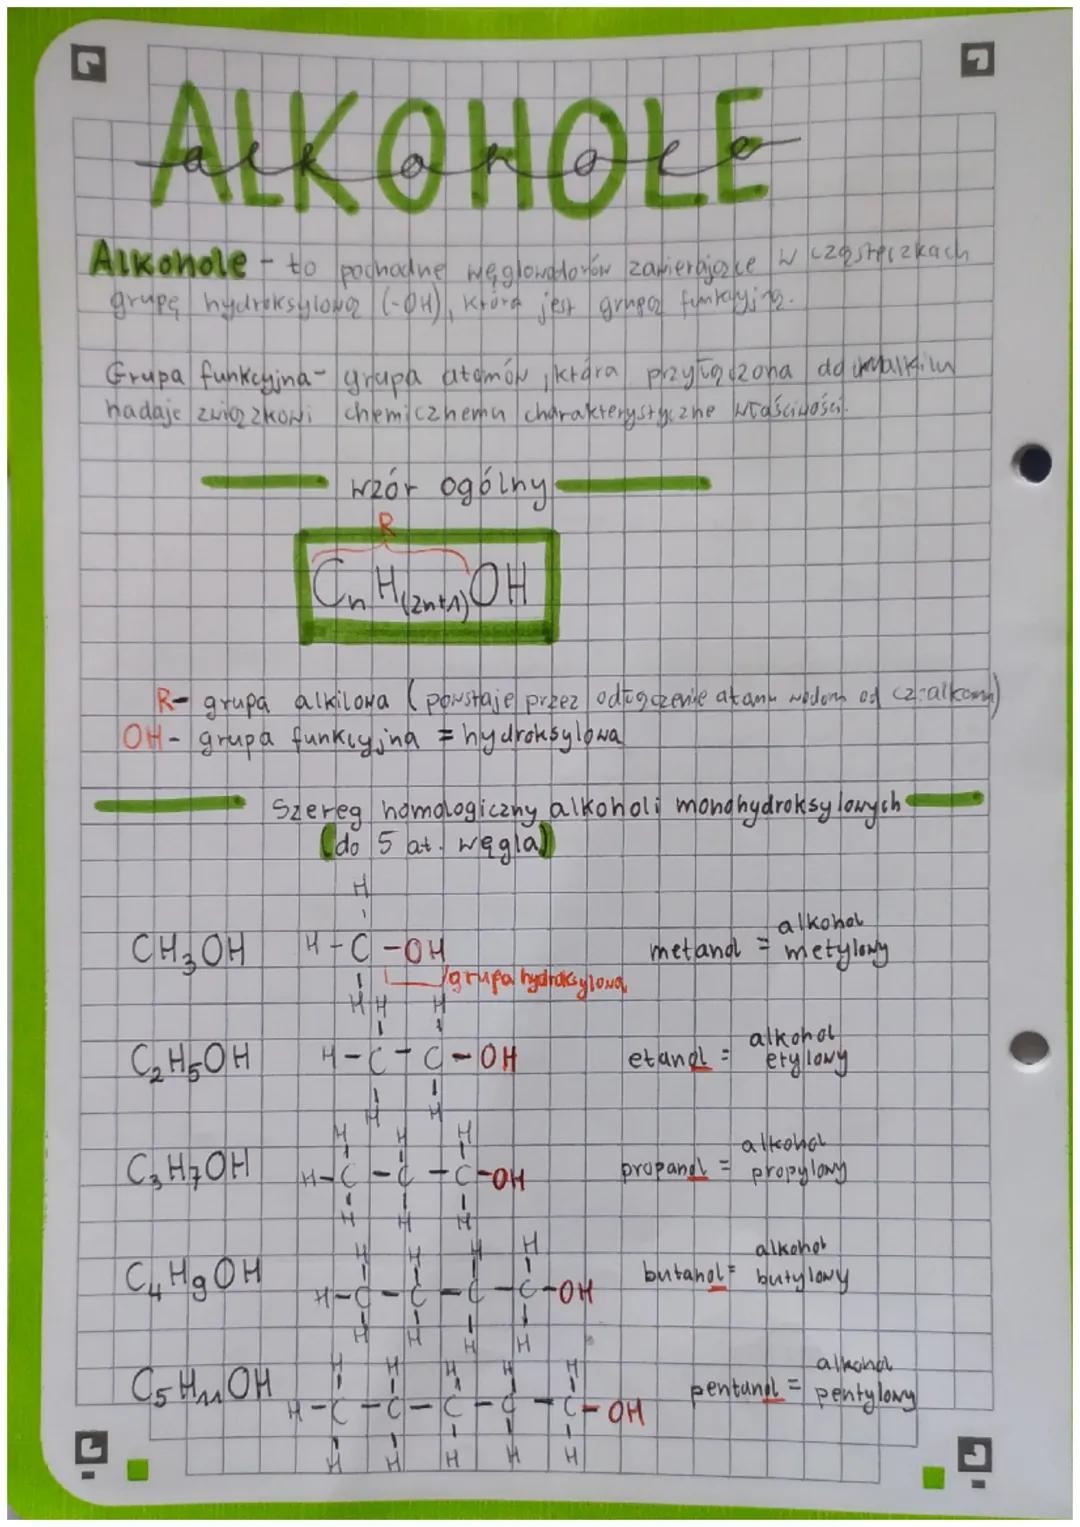 ALKOHOLE
alkohole
Alkohole - to pochodne węglowodorów zawierające w cząsteczkach
grupę hydroksylową (-OH), która jest grupą funkcyjną.
Grupa funkcyjna - grupa atomów, która przyłączona do alkilu
nadaje związkowi chemicznemu charakterystyczne właściwości.
wzór ogólny
R
CnH(2n+1)OH
R- grupa alkilowa (powstaje przez odłączenie atomu wodoru od cz. alkanu)
OH- grupa funkcyjna = hydroksylowa
Szereg homologiczny alkoholi monohydroksylowych
(do 5 at. węgla)
H
CH3OH H-C-OH metanol = alkohol metylowy
grupa hydroksylowa
H
H H
C2H5OH H-C-C-OH etanol = alkohol etylowy
H H
H H H
C3H7OH H-C-C-C-OH propanol = alkohol propylowy
H H H
H H H H
C4H9OH H-C-C-C-C-OH butanol = alkohol butylowy
H H H H
H H H H H
C5H11OH H-C-C-C-C-C-OH pentanol = alkohol pentylowy
H H H H H